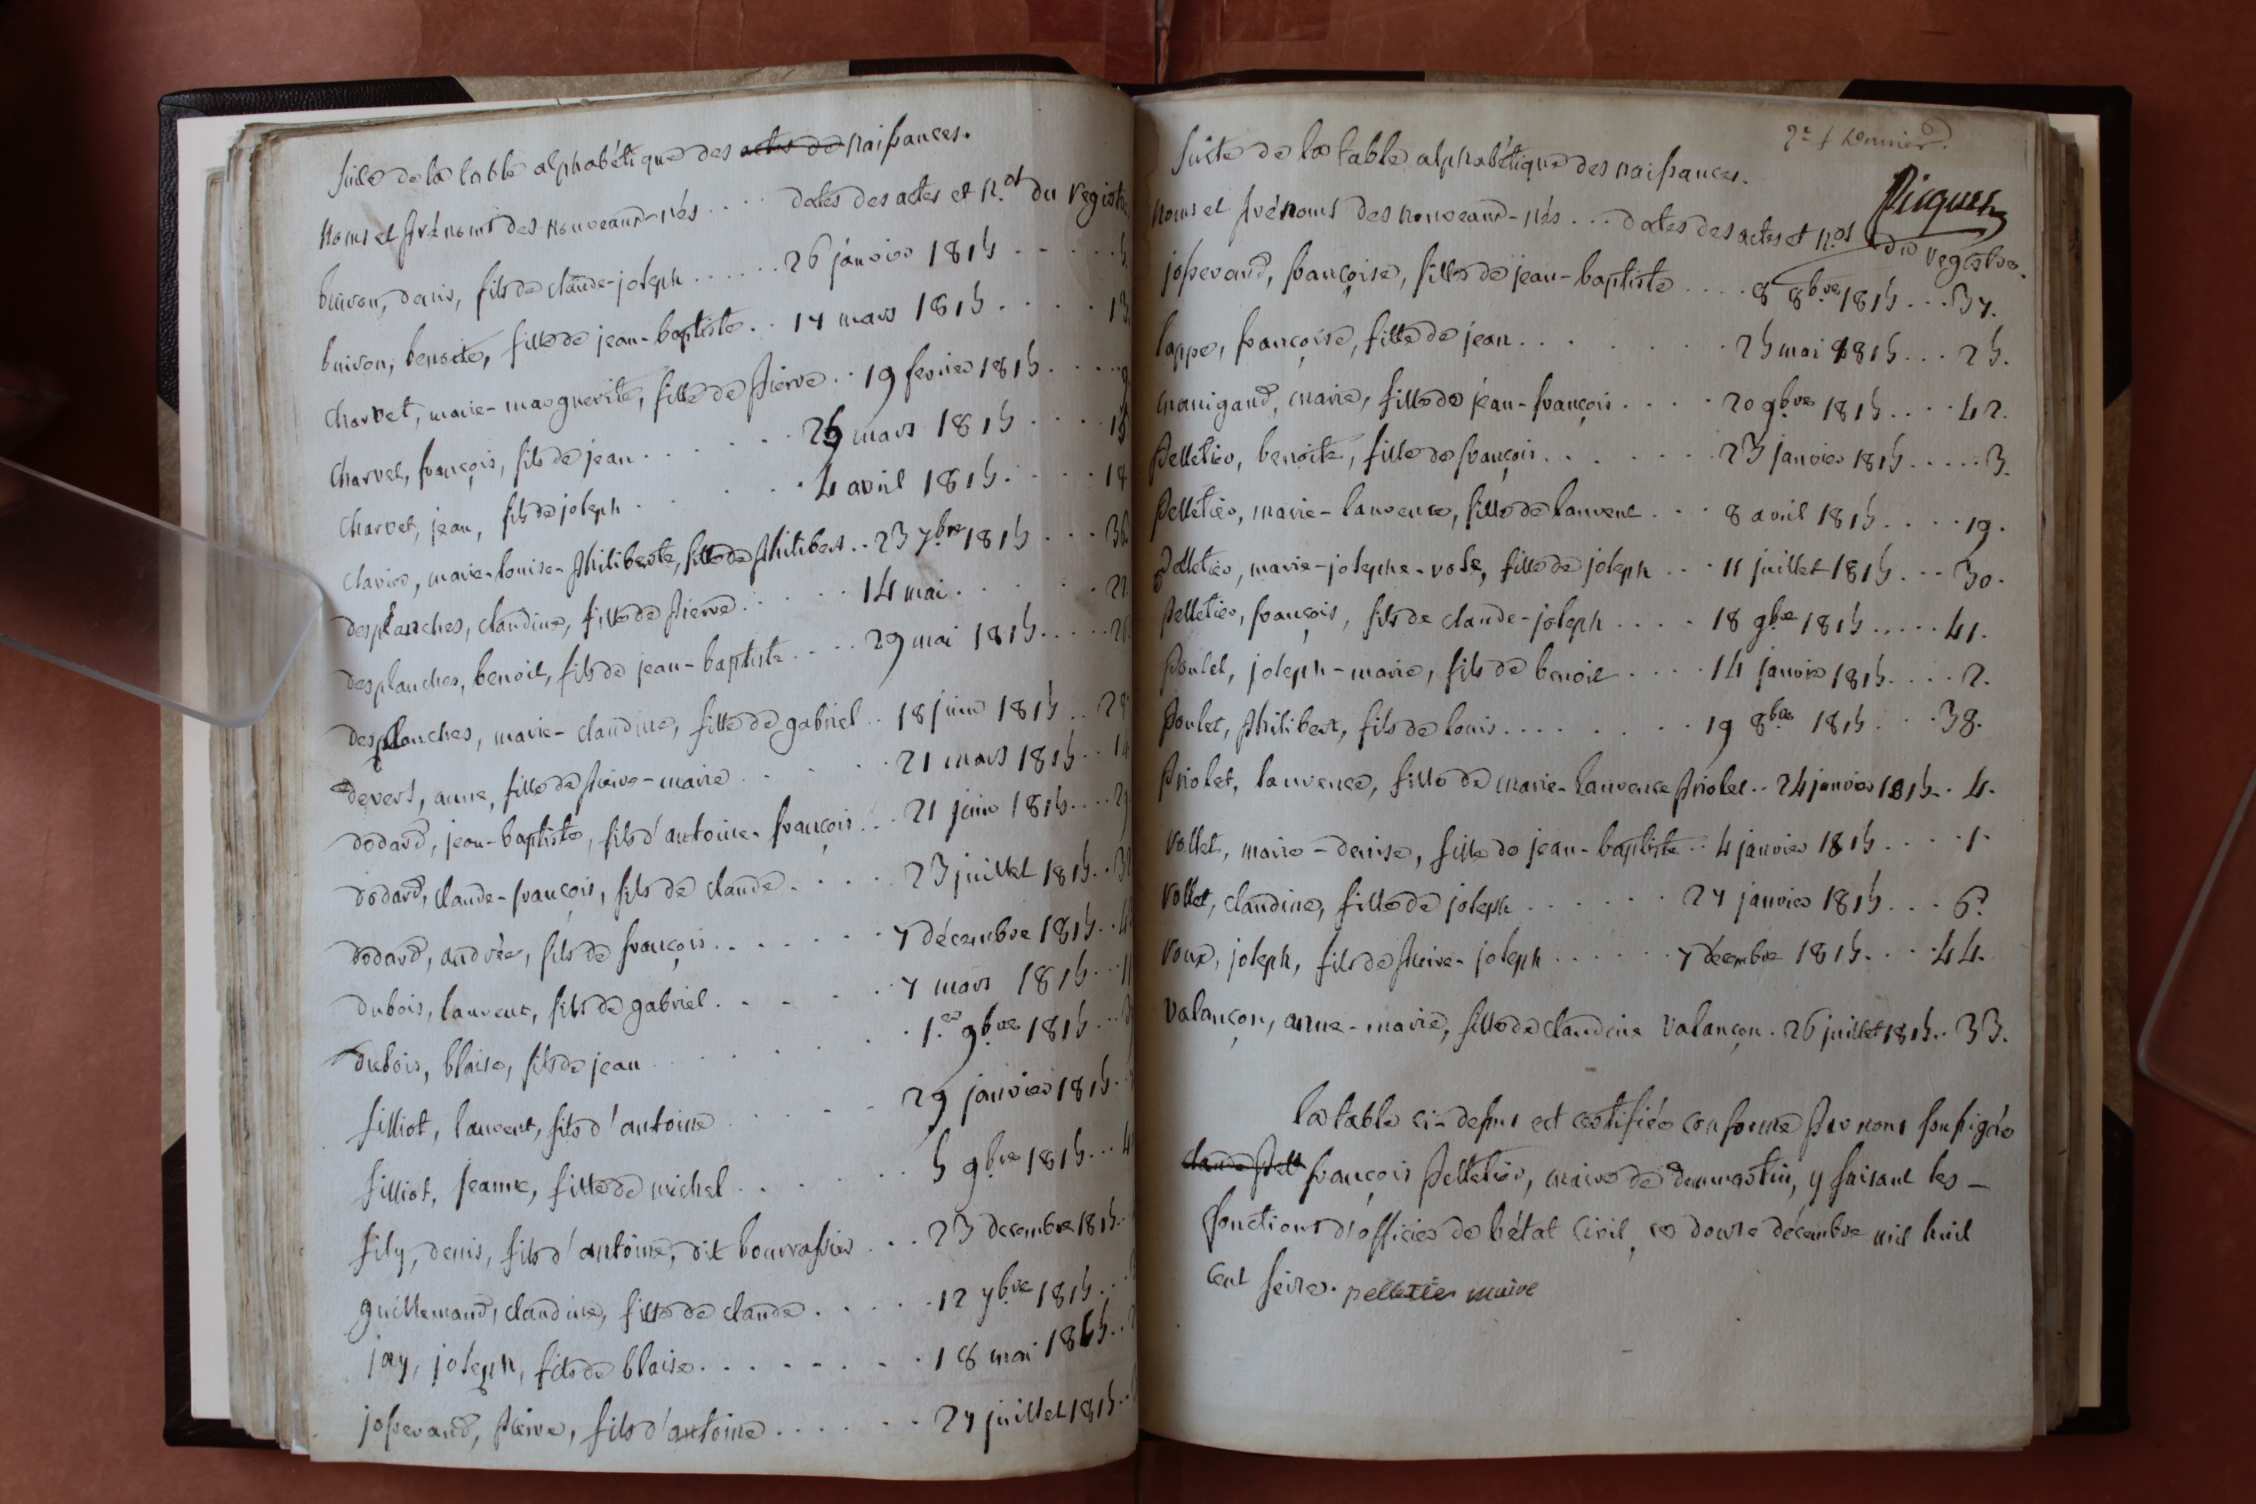 suite de la table alphabétique des actes de naissances.
noms et prénoms des nouveaux-nés .... dates des actes et n.os du registre
buiron, denis, fils de claude-joseph ...... 26 janvier 1815 ..... 5
buiron, benoite, fille de jean-baptiste .. 17 mars 1815 ..... 13
charvet, marie-marguerite, fille de pierre .. 19 fevrier 1815 .... 9
charvet, françois, fils de jean ...... 26 mars 1815 .... 15
charvet, jean, fils de joseph ...... 4 avril 1815 ..... 18
clavier, marie-louise-philiberte, fille de philibert .. 23 7bre 1815 ... 36
desplanches, claudine, fille de pierre ..... 14 mai ...... 22
desplanches, benoit, fils de jean-baptiste .... 29 mai 1815 .....
desplanches, marie-claudine, fille de gabriel .. 18 juin 1815 .. 28
devert, anne, fille de pierre-marie ..... 21 mars 1815 .. 14
dodard, jean-baptiste, fils d'antoine-françois .. 21 juin 1815 .... 29
dodard, claude-françois, fils de claude ..... 23 juillet 1815 ..
dodard, andrée, fils de françois ....... 7 décembre 1815 ..
dubois, laurent, fils de gabriel ..... 7 mars 1815 ... 11
dubois, blaise, fils de jean ....... 1.er 9bre 1815 ...
filliot, laurent, fils d'antoine ..... 29 janvier 1815 .
filliot, jeanne, fille de michel ...... 5 9bre 1815 ...
fily, denis, fils d'antoine, dit bourrassier ... 23 decembre 1815 .
guillemaud, claudine, fille de claude ...... 12 7bre 1815 ..
jay, joseph, fils de blaise ........ 18 mai 1815 ..
josserand, pierre, fils d'antoine ...... 27 juillet 1815 ..
suite de la table alphabétique des naissances.
noms et prénoms des nouveaux-nés ... dates des actes et n.os du registre.
josserand, françoise, fille de jean-baptiste .... 8 8bre 1815 ... 37.
lappe, françoise, fille de jean ........ 25 mai 1815 ... 25.
manigand, marie, fille de jean-françois .... 20 9bre 1815 .... 42.
pelletier, benoite, fille de françois ....... 23 janvier 1815 ..... 3.
pelletier, marie-laurence, fille de laurent ... 8 avril 1815 .... 19.
pelletier, marie-josephe-rose, fille de joseph ... 11 juillet 1815 ... 30.
pelletier, françois, fils de claude-joseph .... 18 9bre 1815 ..... 41.
poulet, joseph-marie, fils de benoit .... 14 janvier 1815 .... 2.
poulet, philibert, fils de louis ........ 19 8bre 1815 ... 38.
priolet, laurence, fille de marie-laurence priolet .. 24 janvier 1815 .. 4.
rollet, marie-denise, fille de jean-baptiste .. 4 janvier 1815 .... 1.
rollet, claudine, fille de joseph ...... 27 janvier 1815 ... 6.
roux, joseph, fils de pierre-joseph ...... 7 décembre 1815 ... 44.
valançon, anne-marie, fille de claudine valançon . 26 juillet 1815 .. 33.
la table ci-dessus est certifiée conforme par nous soussigné
claude pell françois pelletier, maire de dommartin, y faisant les
fonctions d'officier de l'état civil, ce douze décembre mil huit
cent seize. pelletier maire